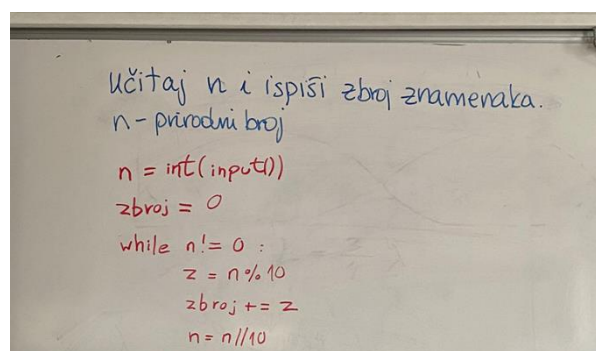 Učitaj n i ispiši zbroj znamenaka.
n - prirodni broj
n = int(input())
zbroj = 0
while n != 0 :
z = n % 10
zbroj += z
n = n//10